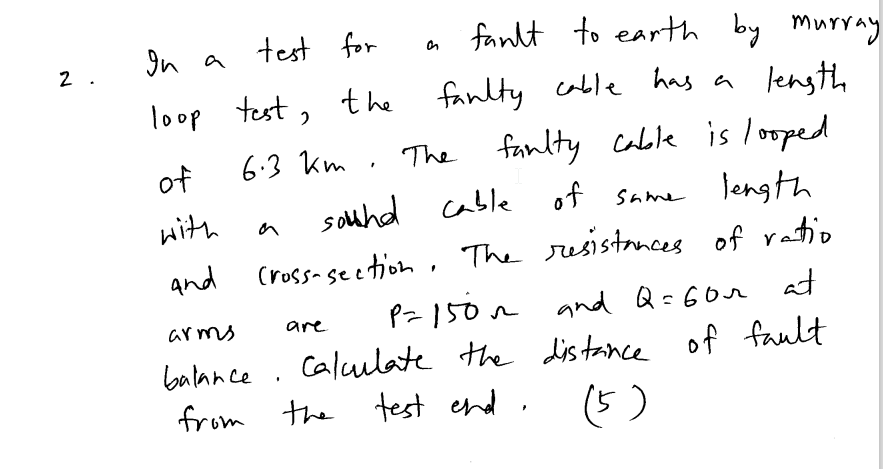 2. In a test for a fault to earth by murray
loop test, the faulty cable has a length
of 6.3 km. The faulty cable is looped
with a sound cable of same length
and cross-section. The resistances of ratio
arms are P=150 Ω and Q=60Ω at
balance. Calculate the distance of fault
from the test end. (5)